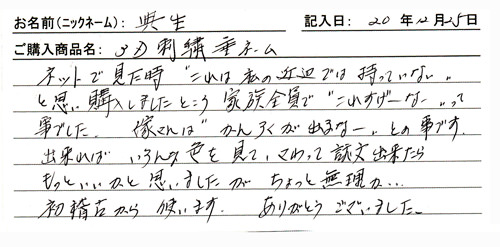 お名前(ニックネーム): 典生 記入日: 20年12月25日
ご購入商品名: 3D刺繍垂ネーム
ネットで見た時 "これは私の近辺では持っていない"
と思い購入しましたところ 家族全員で"これすげーなー"って
事でした. 嫁さんは"かんろくが出るなー"との事です.
出来れば いろんな色を見て, さわって 註文出来たら
もっといいかと思いましたが ちょっと無理か…
初稽古から使います. ありがとうございました.